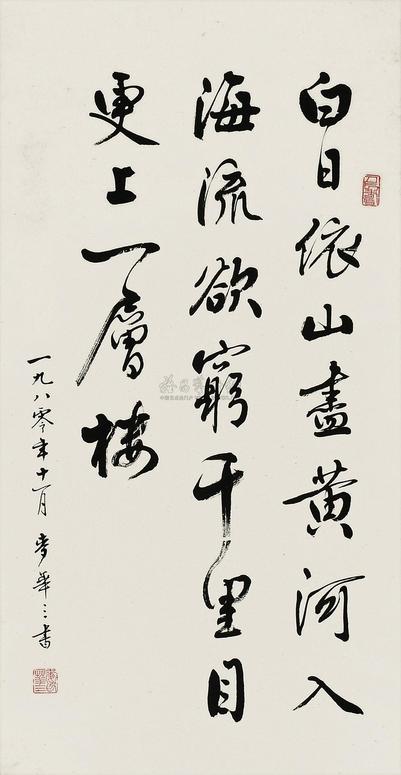 白日依山盡黃河入
海流欲窮千里目
更上一層樓
一九八零年十一月 麥華三書